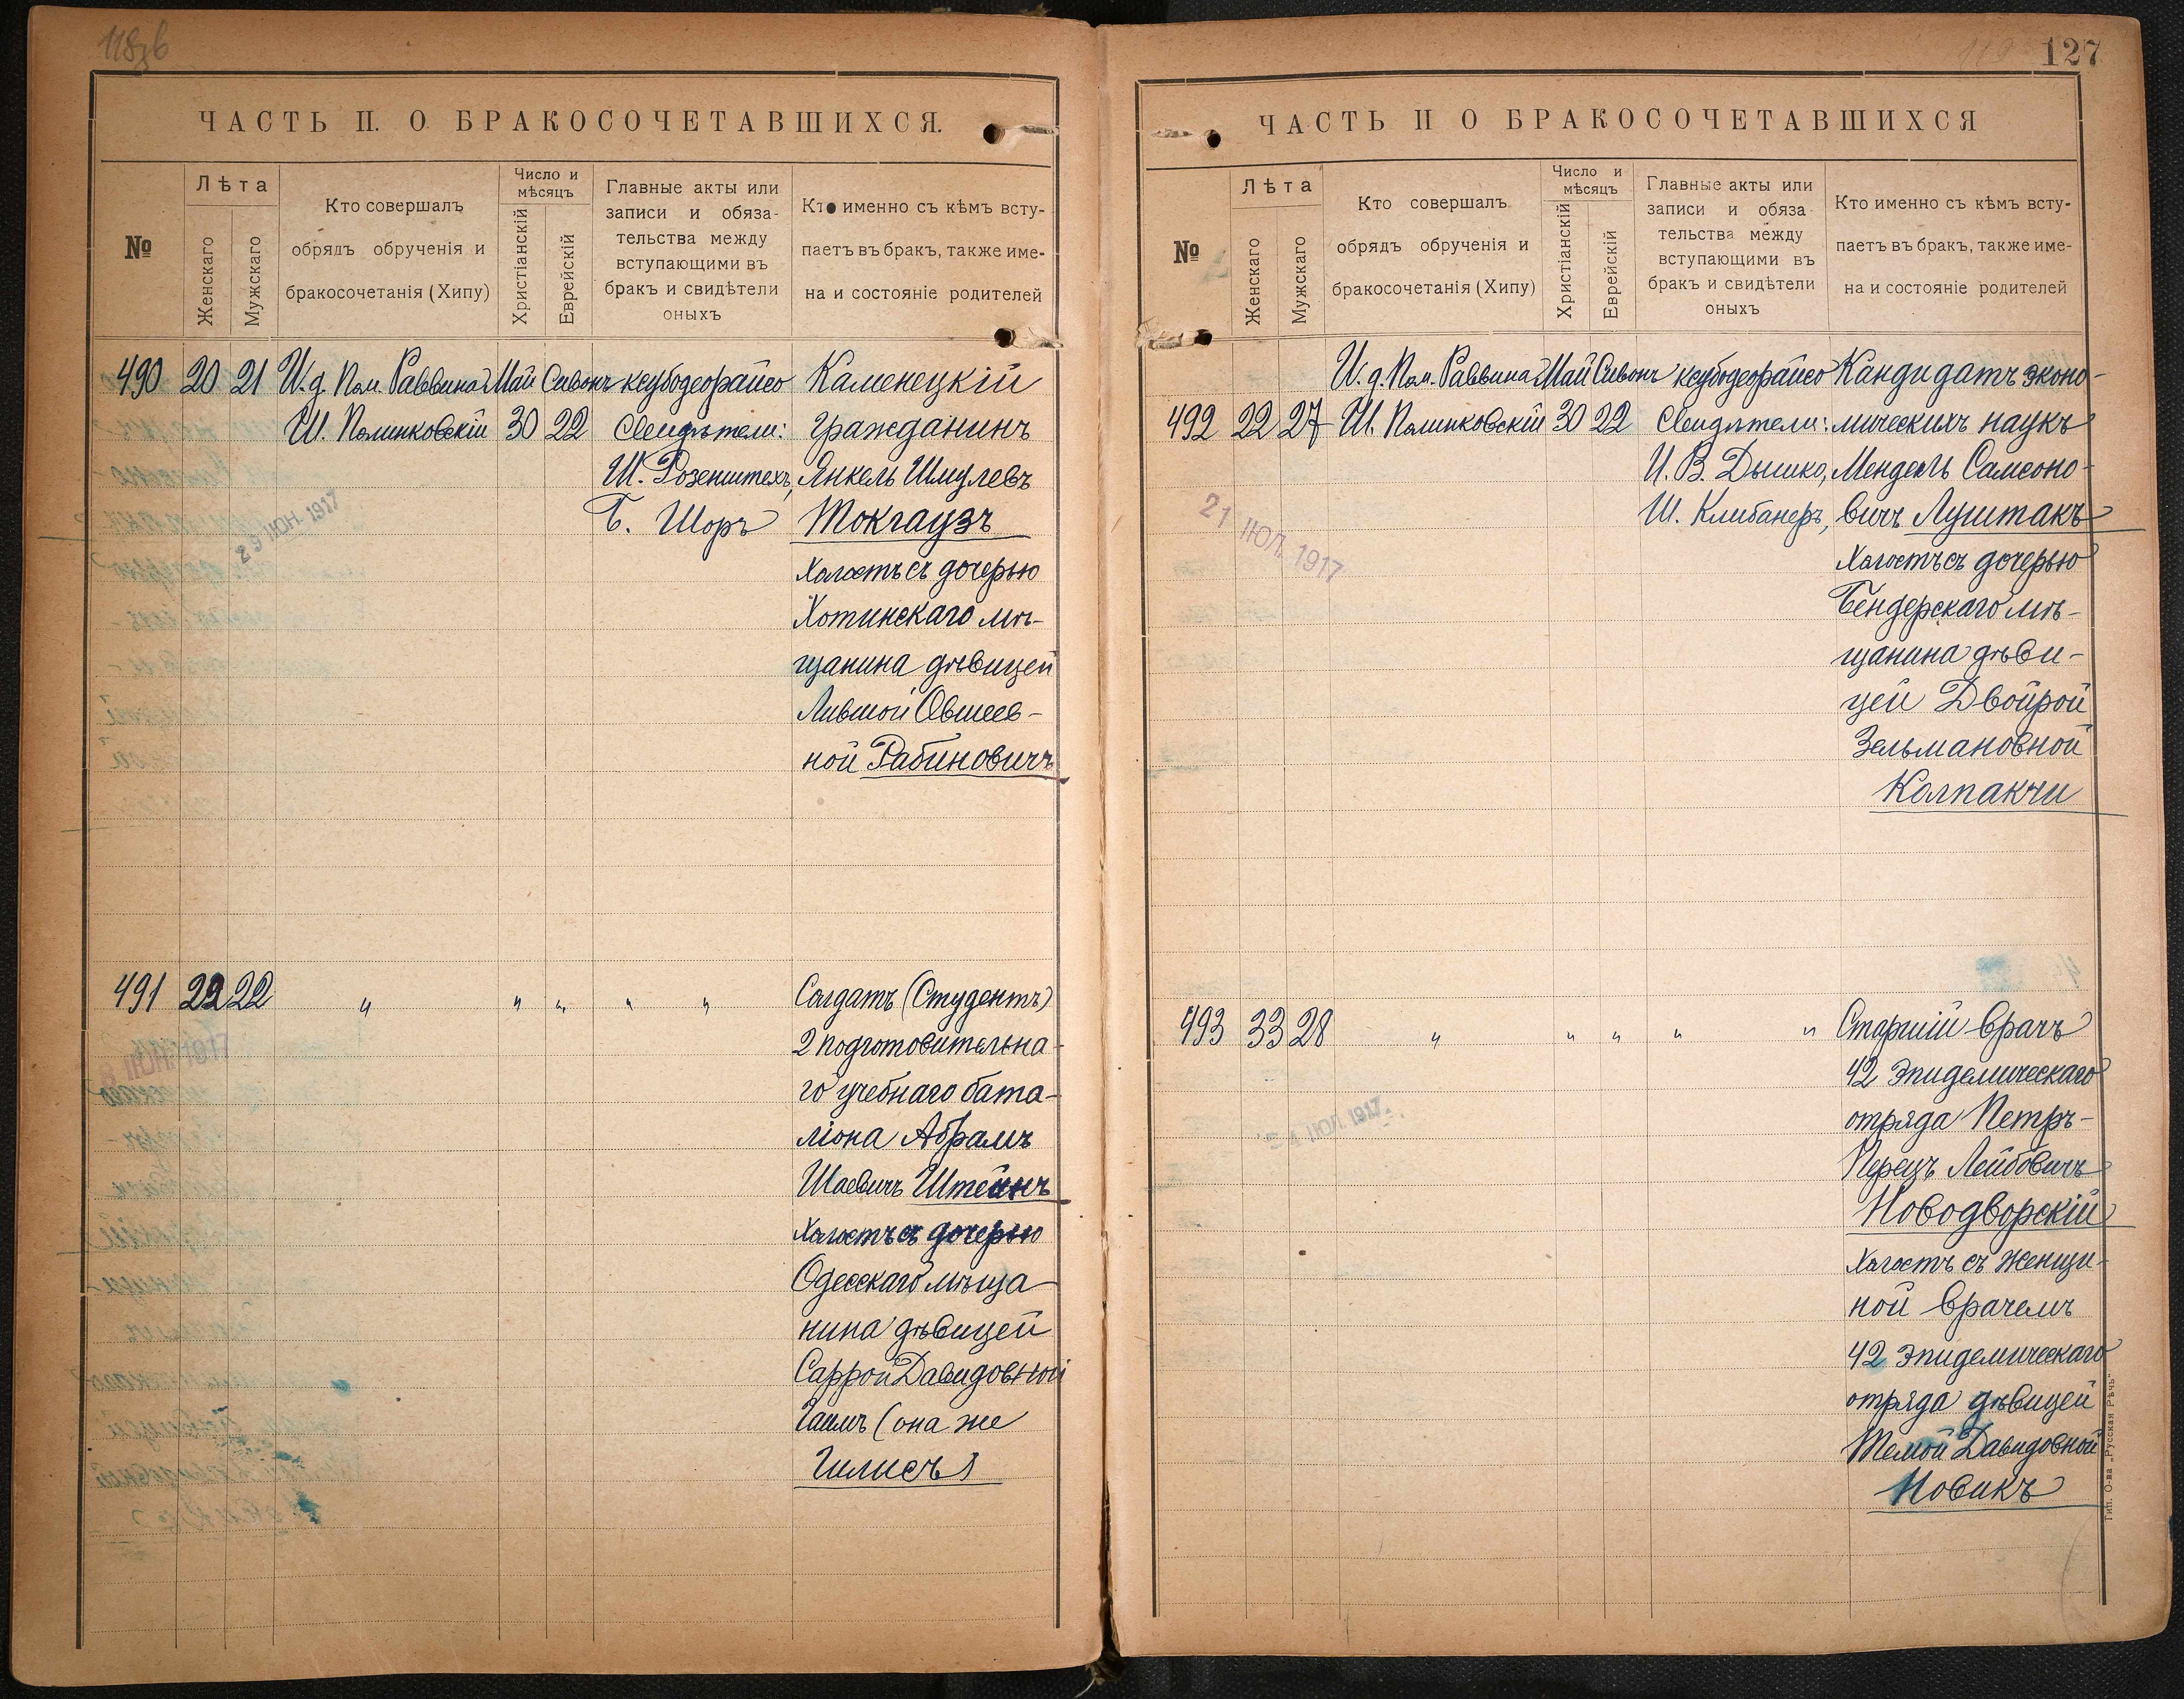 118зв
ЧАСТЬ II. О БРАКОСОЧЕТАВШИХСЯ.
№
Лѣта
Женскаго
Мужскаго
Кто совершалъ
обрядъ обрученія и
бракосочетанія (Хипу)
Число и
мѣсяцъ
Христіанскій
Еврейскій
Главные акты или
записи и обяза-
тельства между
вступающими въ
бракъ и свидѣтели
оныхъ
Кто именно съ кѣмъ всту-
паетъ въ бракъ, также име-
на и состояніе родителей
490 20 21 И. д. Пом. Раввина Май Сивонъ ксубодеорайсо Каменецкій
Ш. Полинковскій 30 22 Свидѣтели: гражданинъ
Ш. Розенштехъ, Янкель Шмулевъ
Б. Шоръ Токгаузъ
29 ІЮН. 1917
холостъ съ дочерью
Хотинскаго мѣ-
щанина дѣвицей
Лившой Овшеев-
ной Рабиновичъ
491 22 22 " " " " " Солдатъ (Студентъ)
2 подготовительна-
го учебнаго бата-
ліона Абрамъ
Шаевичъ Штейнъ
холостъ съ дочерью
Одесскаго мѣща-
нина дѣвицей
Саррой Давидовной
Гаимъ (она же
Гилисъ)
127
ЧАСТЬ II О БРАКОСОЧЕТАВШИХСЯ
№
Лѣта
Женскаго
Мужскаго
Кто совершалъ
обрядъ обрученія и
бракосочетанія (Хипу)
Число и
мѣсяцъ
Христіанскій
Еврейскій
Главные акты или
записи и обяза-
тельства между
вступающими въ
бракъ и свидѣтели
оныхъ
Кто именно съ кѣмъ всту-
паетъ въ бракъ, также име-
на и состояніе родителей
И. д. Пом. Раввина Май Сивонъ ксубодеорайсо Кандидатъ эконо-
492 22 27 Ш. Полинковскій 30 22 Свидѣтели: мическихъ наукъ
И. В. Дышко, Мендель Самсоно-
Ш. Клибанеръ, вичъ Луштакъ
21 ІЮЛ. 1917
холостъ съ дочерью
Бендерскаго мѣ-
щанина дѣви-
цей Двойрой
Зельмановной
Колпакчи
493 33 28 " " " " " Старшій врачъ
42 Эпидемическаго
отряда Петръ-
Перецъ Лейбовичъ
ІЮЛ. 1917
Новодворскій
холостъ съ женщи-
ной врачемъ
42 Эпидемическаго
отряда дѣвицей
Темой Давидовной
Новикъ
Тип. О-ва „Русская Рѣчь"